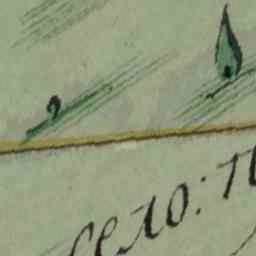 село: п